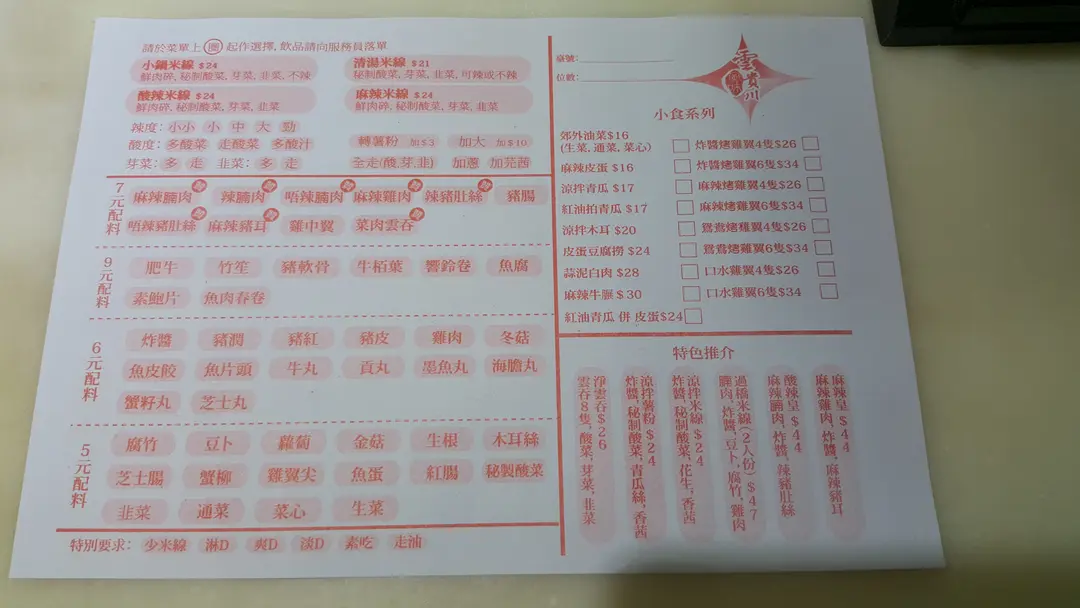 請於菜單上 圈 起作選擇, 飲品請向服務員落單
小鍋米線 $24
鮮肉碎, 秘制酸菜, 芽菜, 韭菜, 不辣
清湯米線 $21
秘制酸菜, 芽菜, 韭菜, 可辣或不辣
酸辣米線 $24
鮮肉碎, 秘制酸菜, 芽菜, 韭菜
麻辣米線 $24
鮮肉碎, 秘制酸菜, 芽菜, 韭菜
辣度: 小小 小 中 大 勁
酸度: 多酸菜 走酸菜 多酸汁
芽菜: 多 走 韭菜: 多 走
轉薯粉 加$3 加大 加$10
全走(酸,芽,韭) 加蔥 加芫茜
7元配料
麻辣腩肉 辣腩肉 唔辣腩肉 麻辣雞肉 辣豬肚絲 豬腸
唔辣豬肚絲 麻辣豬耳 雞中翼 菜肉雲吞
9元配料
肥牛 竹笙 豬軟骨 牛栢葉 響鈴卷 魚腐
素鮑片 魚肉春卷
6元配料
炸醬 豬潤 豬紅 豬皮 雞肉 冬菇
魚皮餃 魚片頭 牛丸 貢丸 墨魚丸 海膽丸
蟹籽丸 芝士丸
5元配料
腐竹 豆卜 蘿蔔 金菇 生根 木耳絲
芝士腸 蟹柳 雞翼尖 魚蛋 紅腸 秘製酸菜
韭菜 通菜 菜心 生菜
特別要求: 少米線 淋D 爽D 淡D 素吃 走油
檯號:
位數:
雲貴川
小食系列
郊外油菜$16
(生菜, 通菜, 菜心)
麻辣皮蛋 $16
涼拌青瓜 $17
紅油拍青瓜 $17
涼拌木耳 $20
皮蛋豆腐撈 $24
蒜泥白肉 $28
麻辣牛𦟌 $30
紅油青瓜 併 皮蛋$24
炸醬烤雞翼4隻$26
炸醬烤雞翼6隻$34
麻辣烤雞翼4隻$26
麻辣烤雞翼6隻$34
鴛鴦烤雞翼4隻$26
鴛鴦烤雞翼6隻$34
口水雞翼4隻$26
口水雞翼6隻$34
特色推介
麻辣皇 $44
麻辣雞肉, 炸醬, 麻辣豬耳
酸辣皇 $44
麻辣腩肉, 炸醬, 辣豬肚絲
過橋米線(2人份) $47
腩肉, 炸醬, 豆卜, 腐竹, 雞肉
涼拌米線 $24
炸醬, 秘制酸菜, 花生, 香茜
涼拌薯粉 $24
炸醬, 秘制酸菜, 青瓜絲, 香茜
淨雲吞 $26
雲吞8隻, 酸菜, 芽菜, 韭菜